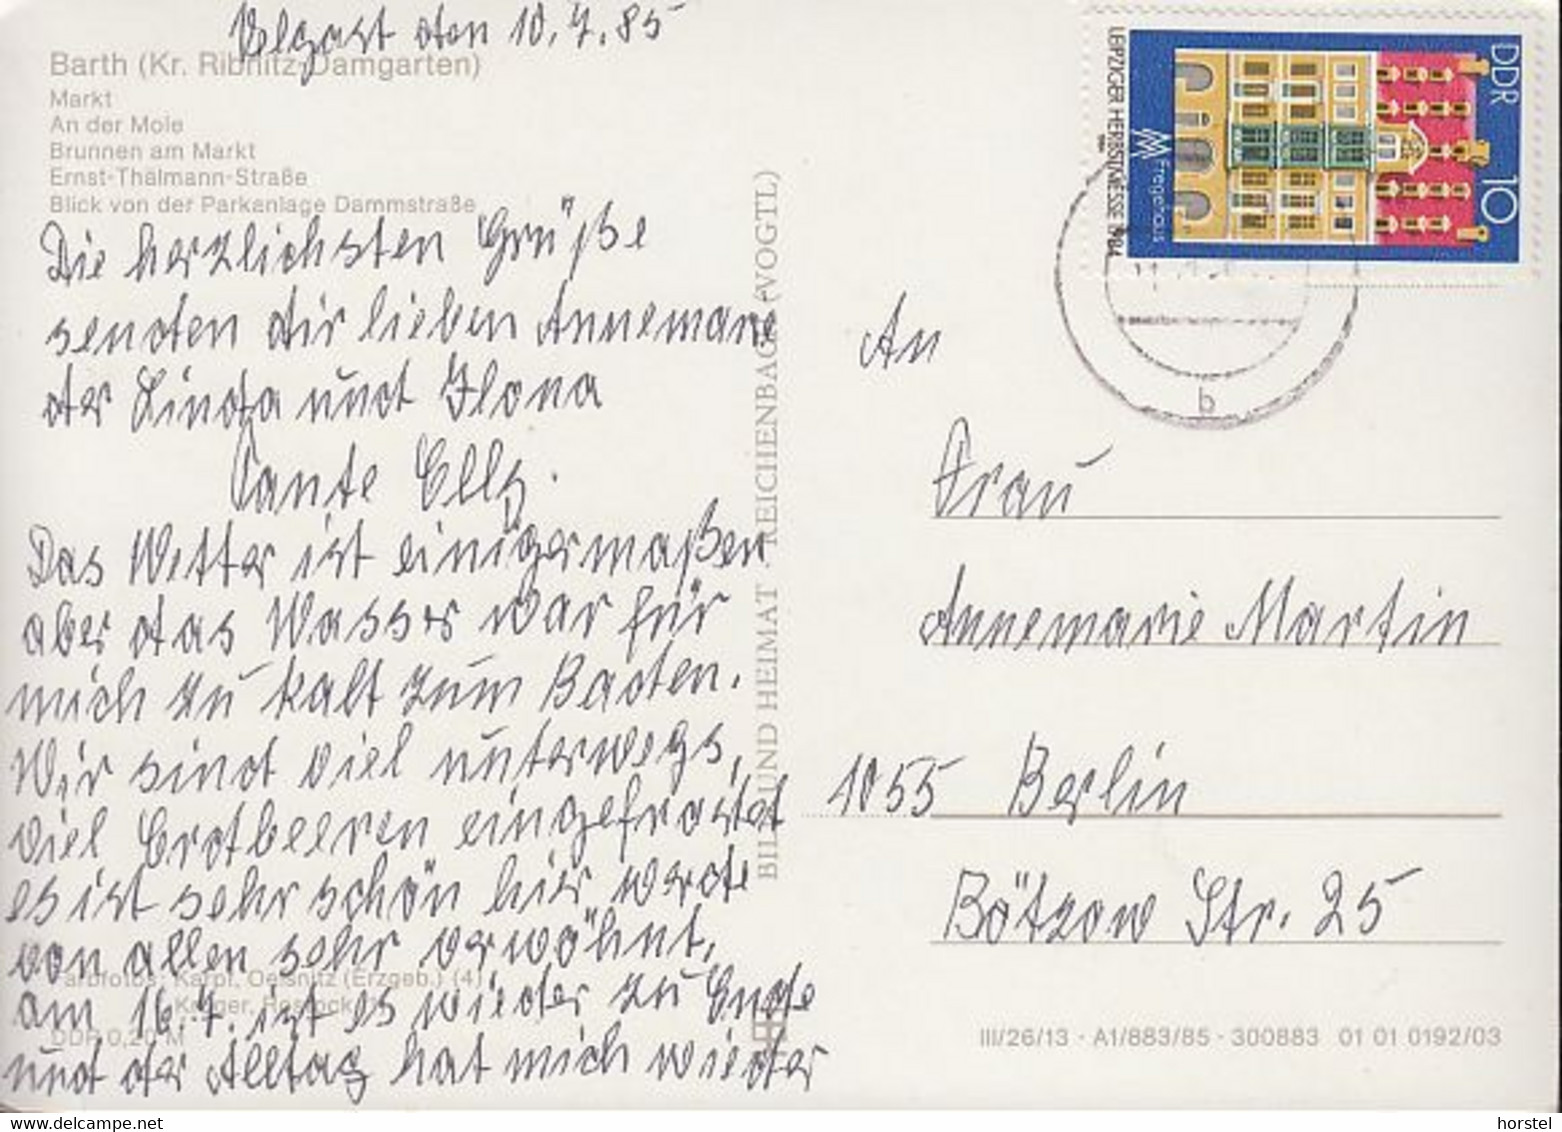 Velgast den 10.7.85
Barth (Kr. Ribnitz-Damgarten)
Markt
An der Mole
Brunnen am Markt
Ernst-Thälmann-Straße
Blick von der Parkanlage Dammstraße
Die herzlichsten Grüße
senden dir lieben Annemarie
der Linda und Ilona
Tante Elly.
Das Wetter ist einigermaßen
aber das Wasser war für
mich zu kalt zum Baden.
Wir sind viel unterwegs,
viel Erdbeeren eingefrostet
es ist sehr schön hier werde
von allen sehr verwöhnt,
am 16.7. ist es wieder zu Ende
und der Alltag hat mich wieder
Farbfotos: Karpf, Oelsnitz (Erzgeb.) (4)
Rostock
DDR 0,20 M
BILD UND HEIMAT REICHENBACH (VOGTL)
LEIPZIGER HERBSTMESSE 1984
Fregehaus
DDR
10
b
An
Frau
Annemarie Martin
1055 Berlin
Bötzow Str. 25
III/26/13 · A1/883/85 · 300883 01 01 0192/03
horstel
www.delcampe.net